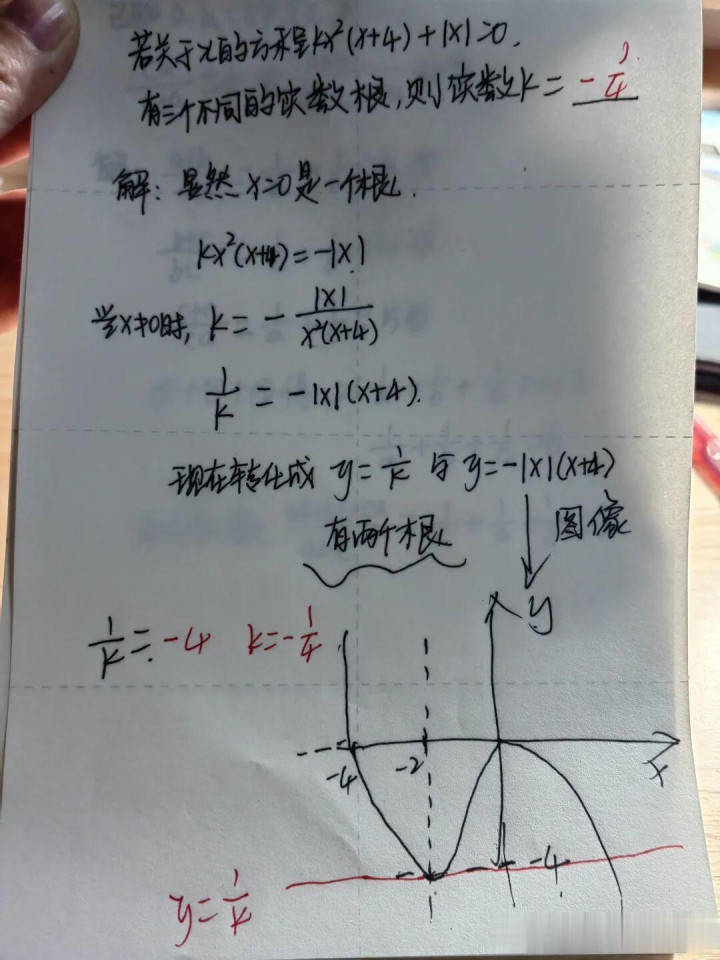 若关于x的方程kx²(x+4)+|x|=0.
有三个不同的实数根,则实数k= -1/4
解: 显然 x=0是一个根.
kx²(x+4)=-|x|
当x≠0时, k= -|x|/x²(x+4)
1/k = -|x|(x+4).
现在转化成 y=1/k 与 y=-|x|(x+4)
有两个根
图像
y
1/k = -4 k=-1/4
-4
-2
x
-4
y=1/k